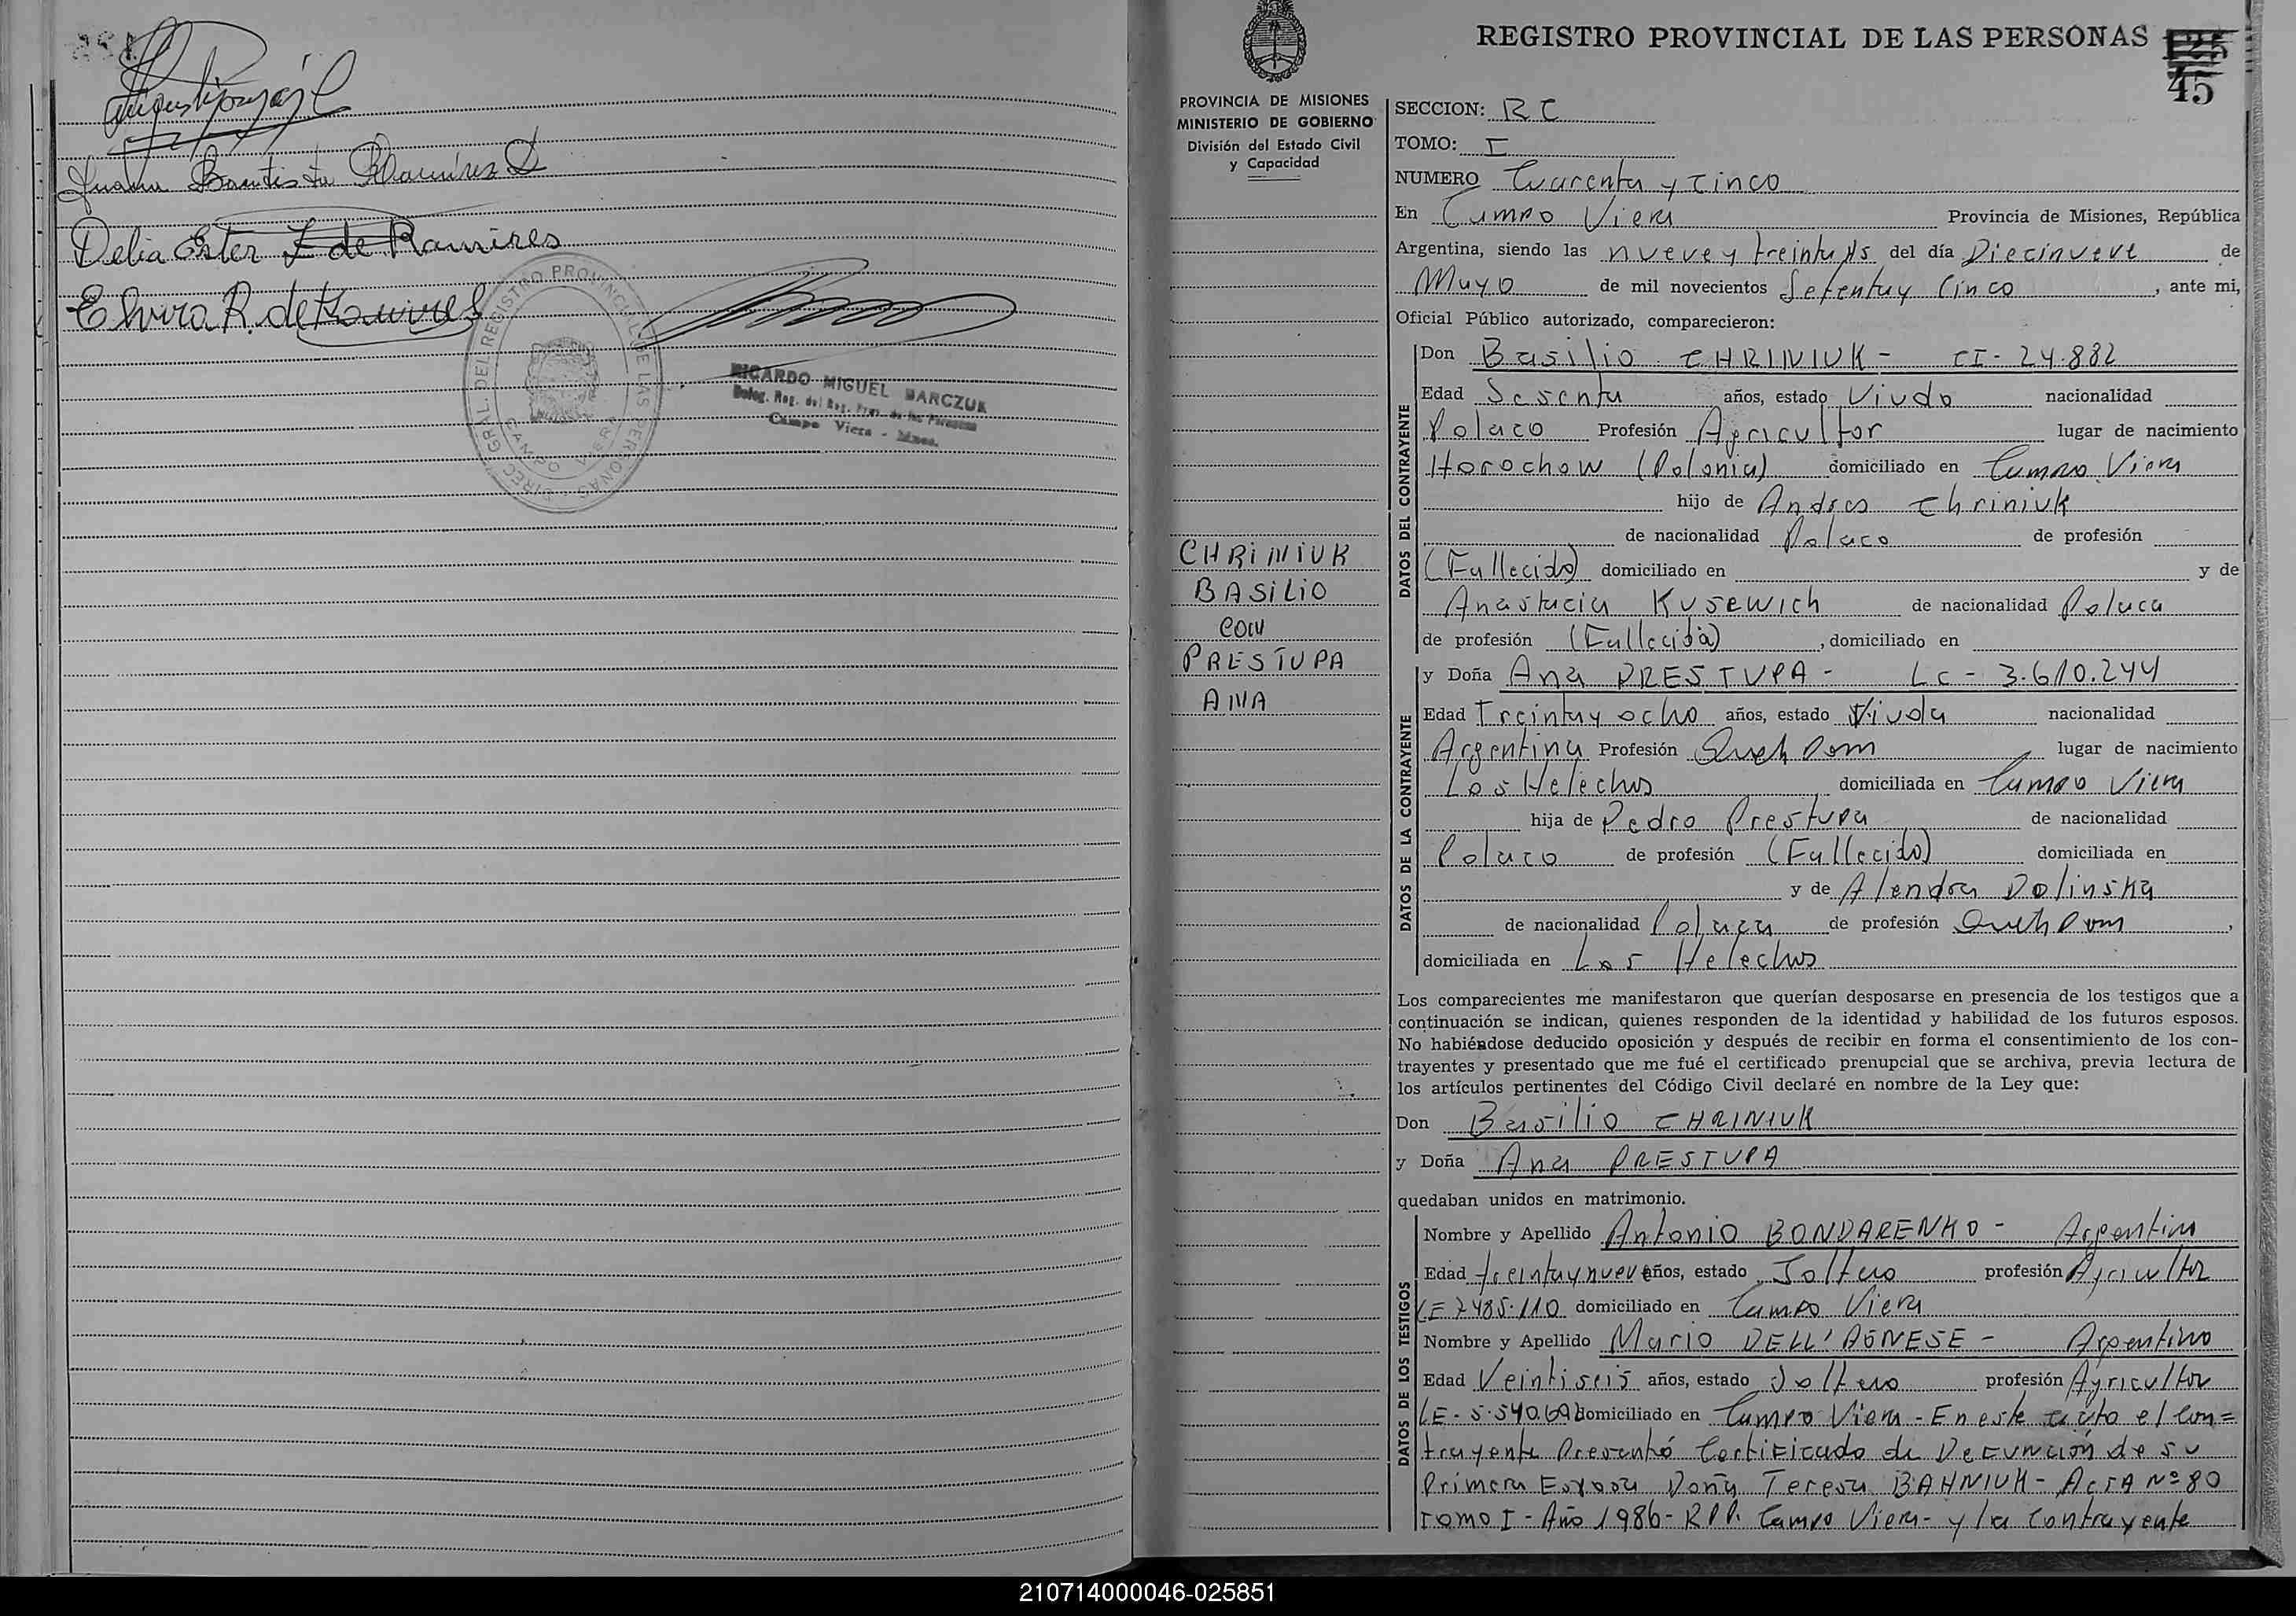 Juana Bautista Ramírez D
Delia Ester Z de Ramires
Elvira R. de Ramires
DIREC. GRAL. DEL REGISTRO PROVINCIAL DE LAS PERSONAS
CAMPO VIERA
RICARDO MIGUEL BARCZUK
Deleg. Reg. del Reg. Prov. de las Personas
Campo Viera - Mnes.
REGISTRO PROVINCIAL DE LAS PERSONAS
45
PROVINCIA DE MISIONES
MINISTERIO DE GOBIERNO
División del Estado Civil
y Capacidad
CHRiNiUK
BASiLiO
CON
PRESTUPA
ANA
SECCION: RC
TOMO: I
NUMERO Cuarenta y cinco
En Campo Viera Provincia de Misiones, República
Argentina, siendo las nueve y treinta Hs del día Diecinueve de
Mayo de mil novecientos Setenta y Cinco, ante mi,
Oficial Público autorizado, comparecieron:
DATOS DEL CONTRAYENTE
Don Basilio CHRINIUK - CI - 24.882
Edad Sesenta años, estado Viudo nacionalidad
Polaco Profesión Agricultor lugar de nacimiento
Horochow (Polonia) domiciliado en Campo Viera
hijo de Andres Chriniuk
de nacionalidad Polaco de profesión
(Fallecido) domiciliado en y de
Anastacia Kusewich de nacionalidad Polaca
de profesión (Fallecida), domiciliado en
DATOS DE LA CONTRAYENTE
y Doña Ana PRESTUPA - LC - 3.610.244
Edad Treinta y ocho años, estado Viuda nacionalidad
Argentina Profesión Queh Dom lugar de nacimiento
Los Helechos domiciliada en Campo Viera
hija de Pedro Prestupa de nacionalidad
Polaco de profesión (Fallecido) domiciliada en
y de Alendra Dolinska
de nacionalidad Polaca de profesión Queh Dom,
domiciliada en Los Helechos
Los comparecientes me manifestaron que querían desposarse en presencia de los testigos que a
continuación se indican, quienes responden de la identidad y habilidad de los futuros esposos.
No habiéndose deducido oposición y después de recibir en forma el consentimiento de los con-
trayentes y presentado que me fué el certificado prenupcial que se archiva, previa lectura de
los artículos pertinentes del Código Civil declaré en nombre de la Ley que:
Don Basilio CHRINIUK
y Doña Ana PRESTUPA
quedaban unidos en matrimonio.
DATOS DE LOS TESTIGOS
Nombre y Apellido Antonio BONDARENKO - Argentino
Edad treinta y nueve años, estado Soltero profesión Agricultor
LE 7485.110 domiciliado en Campo Viera
Nombre y Apellido Mario DELL'AGNESE - Argentino
Edad Veintiseis años, estado Soltero profesión Agricultor
LE - 5.540.69 domiciliado en Campo Viera - En este acto el Con=
trayente Presentó Certificado de Defunción de su
Primera Esposa Doña Teresa BAHNIUK - Acta Nº 80
Tomo I - Año 1986 - RPP. Campo Viera - y la Contrayente
210714000046-025851